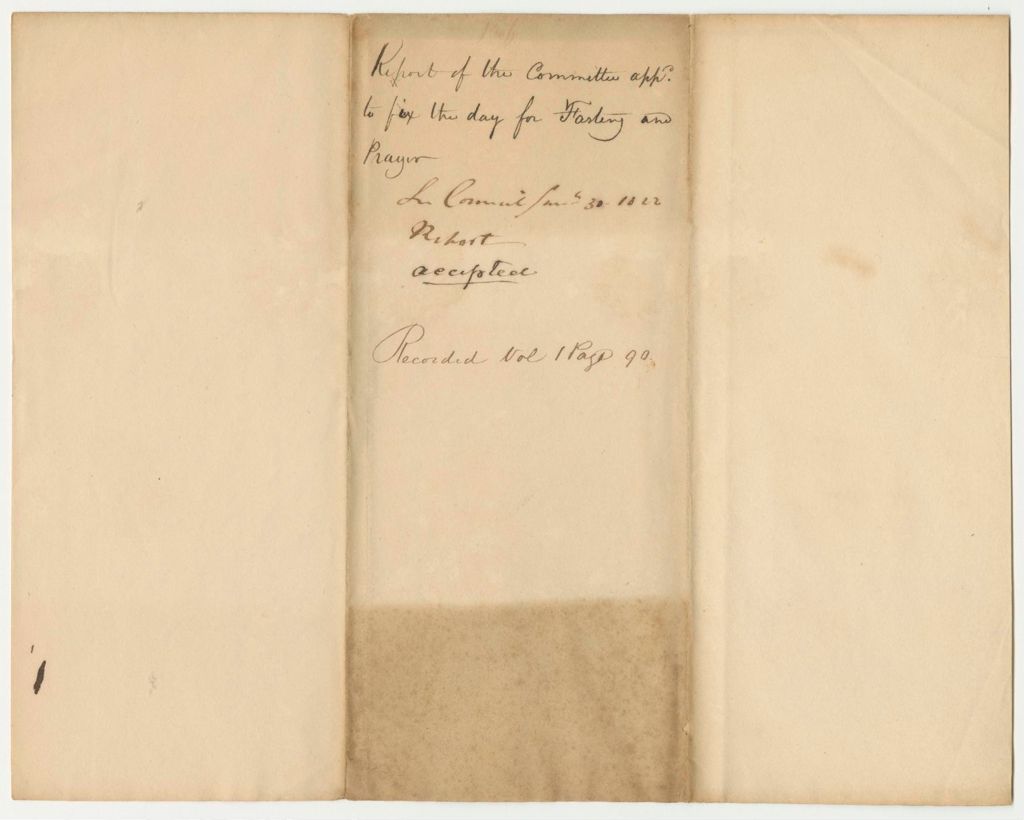 Report of the Committee appd.
to fix the day for Fasting and
Prayer
In Council Jany 30 1822
Report
accepted
Recorded Vol 1 Page 90